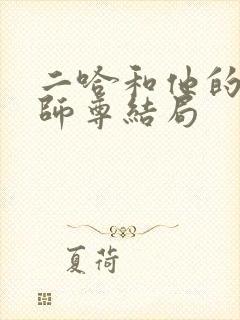 二哈和他的
師尊結局
夏荷